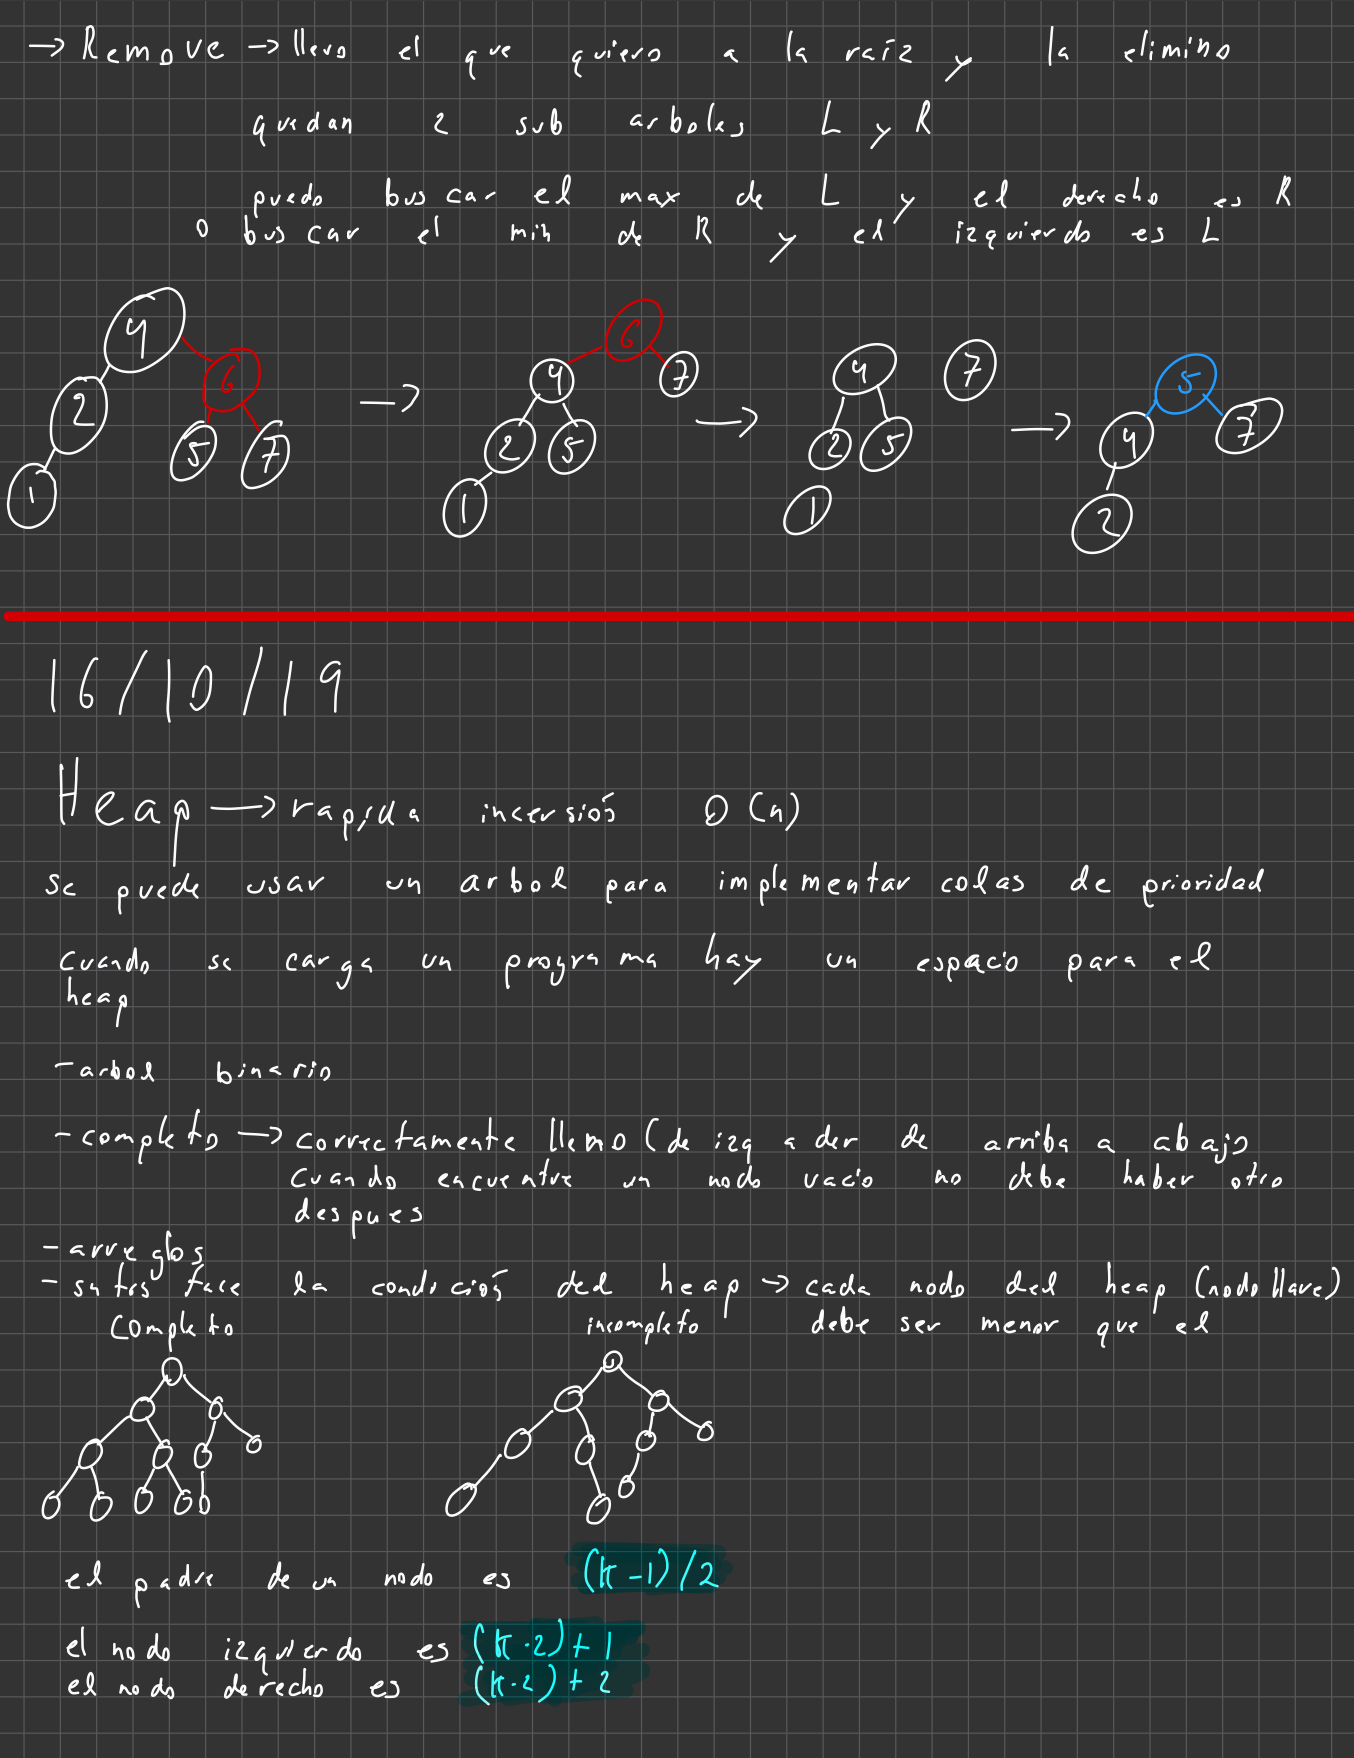 → Remove → llevo el que quiero a la raíz y la elimino
quedan 2 sub arboles L y R
puedo buscar el max de L y el derecho es R
o buscar el min de R y el izquierdo es L
4 6 2 5 7 1 → 6 4 7 2 5 1 → 4 7 2 5 1 → 5 4 7 2
16/10/19
Heap → rapida incersión O(n)
se puede usar un arbol para implementar colas de prioridad
cuando se carga un programa hay un espacio para el
heap
- arbol binario
- completo → correctamente lleno (de izq a der de arriba a abajo
cuando encuentre un nodo vacio no debe haber otro
despues
- arreglos
- satisface la condición del heap → cada nodo del heap (nodo llave)
debe ser menor que el
completo incompleto
el padre de un nodo es (k-1)/2
el nodo izquierdo es (k·2)+1
el nodo derecho es (k·2)+2